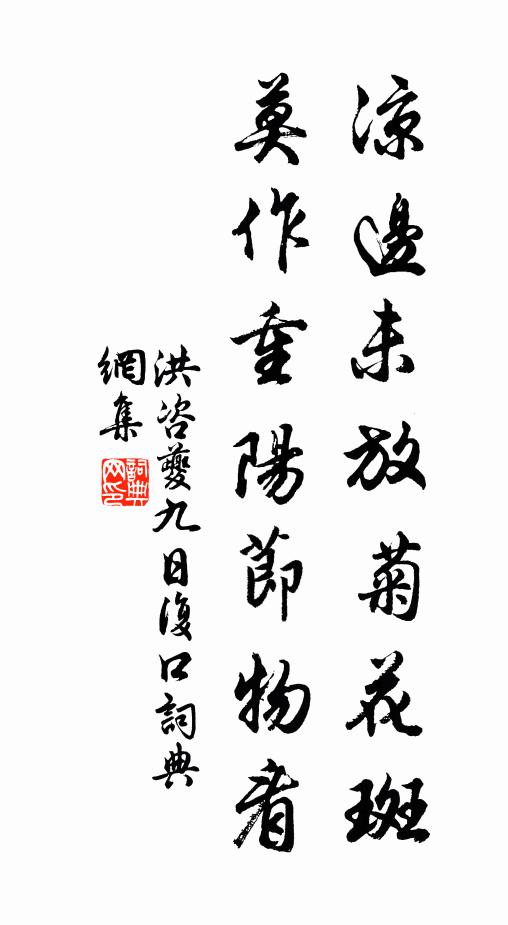 涼邊未放菊花斑
莫作重陽節物看
洪咨夔九日復口詞典
網集
詞典網印